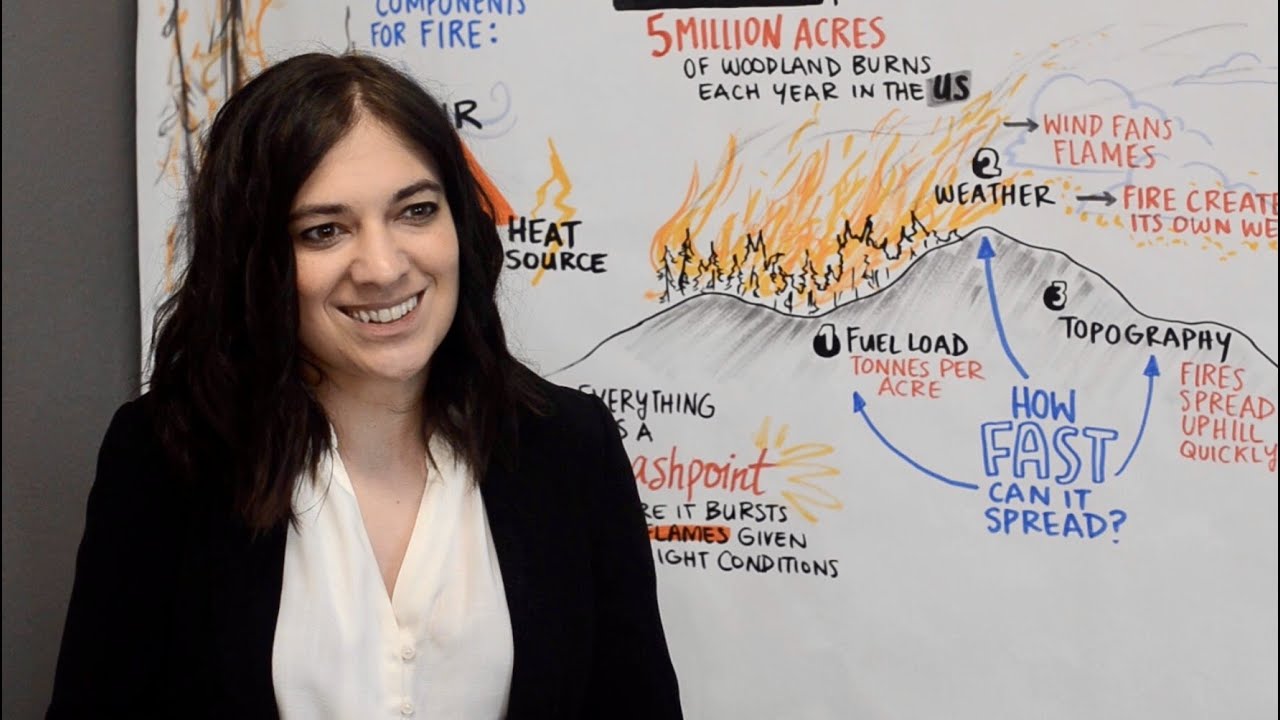 COMPONENTS
FOR FIRE:
HEAT
SOURCE
5 MILLION ACRES
OF WOODLAND BURNS
EACH YEAR IN THE US
→ WIND FANS
FLAMES
2
WEATHER
→ FIRE CREAT
ITS OWN WE
1 FUEL LOAD
TONNES PER
ACRE
3
TOPOGRAPHY
FIRES
SPREAD
UPHILL
QUICKLY
HOW
FAST
CAN IT
SPREAD?
EVERYTHING
A
ashpoint
RE IT BURSTS
FLAMES GIVEN
IGHT CONDITIONS